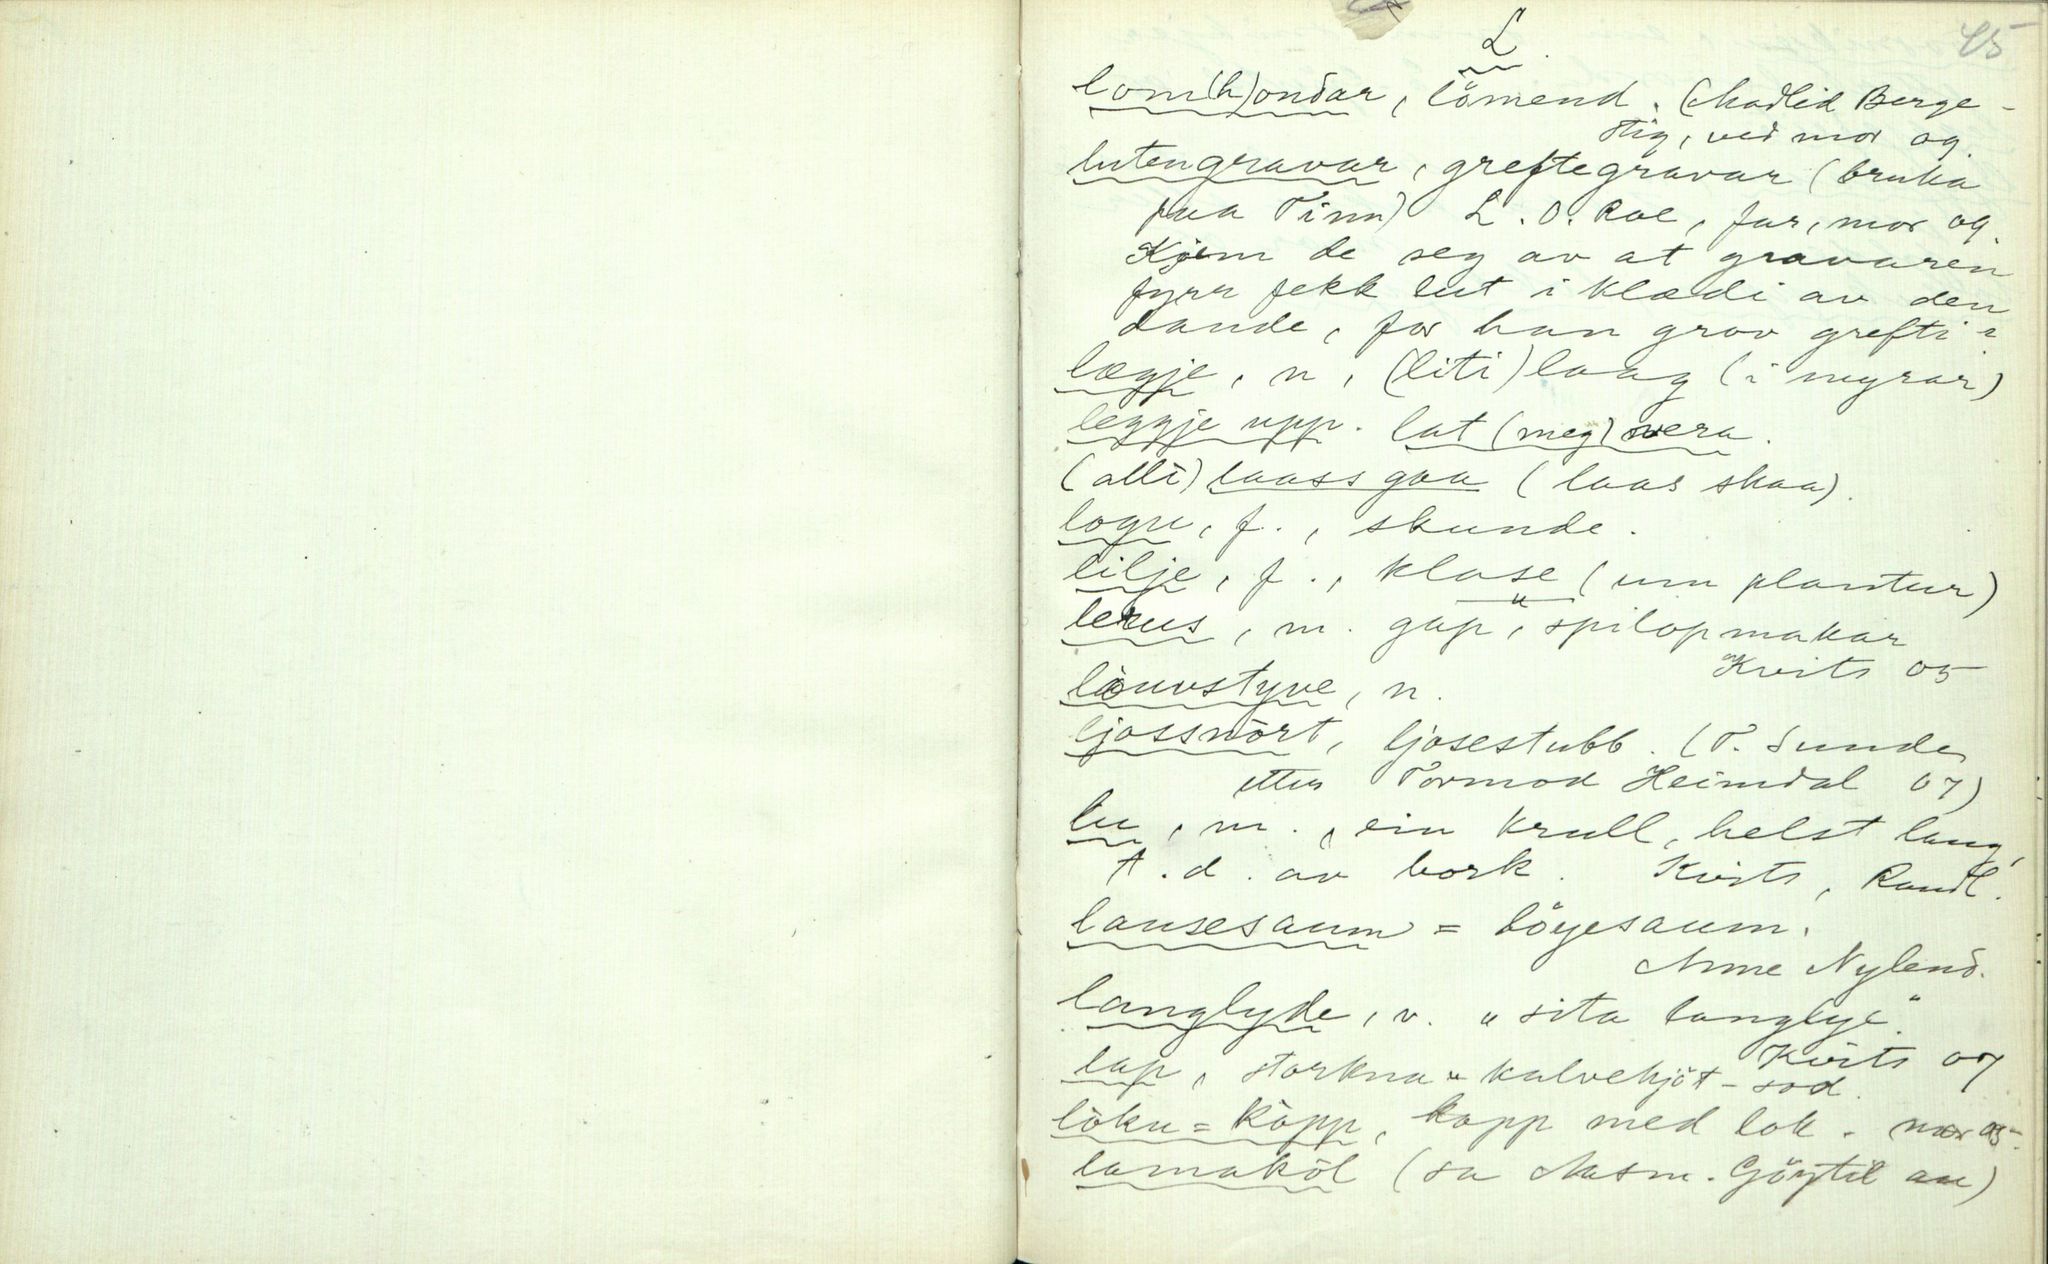 45
L
lom(h)ondar, lömend. (Madlid Berge-
stig, ved mor og.
lutengravar, greftegravar (bruka
paa Tinn) L. O. Roe, far, mor og.
Kjem de seg av at gravaren
fyrr fekk lut i klædi av den
daude, for han grov grefti?
lægje, n, (liti) laag (i myrar)
leggje upp. lat (meg) vera.
(alli) laass gaa (laas skaa).
logu, f., skunde.
lilje, f., klase (um plantur)
lekus, m. gap, spilopmakar
Kvits 05
lauvstyve, n.
ljossnört, ljosestubb. (T. Sunde
etter Tormod Heimdal 07)
lu, m., ein krull, helst lang,
t. d. av bork. Kvits, Raudl.
lausesaum = löyesaum.
Anne Nylend.
langlyde, v. "sita langlye".
Kvits 07
lap, storkna kalvekjöt-sod.
löku=köpp, kopp med lok. mor 05-
lamaköl (sa Aasm. Göytil)